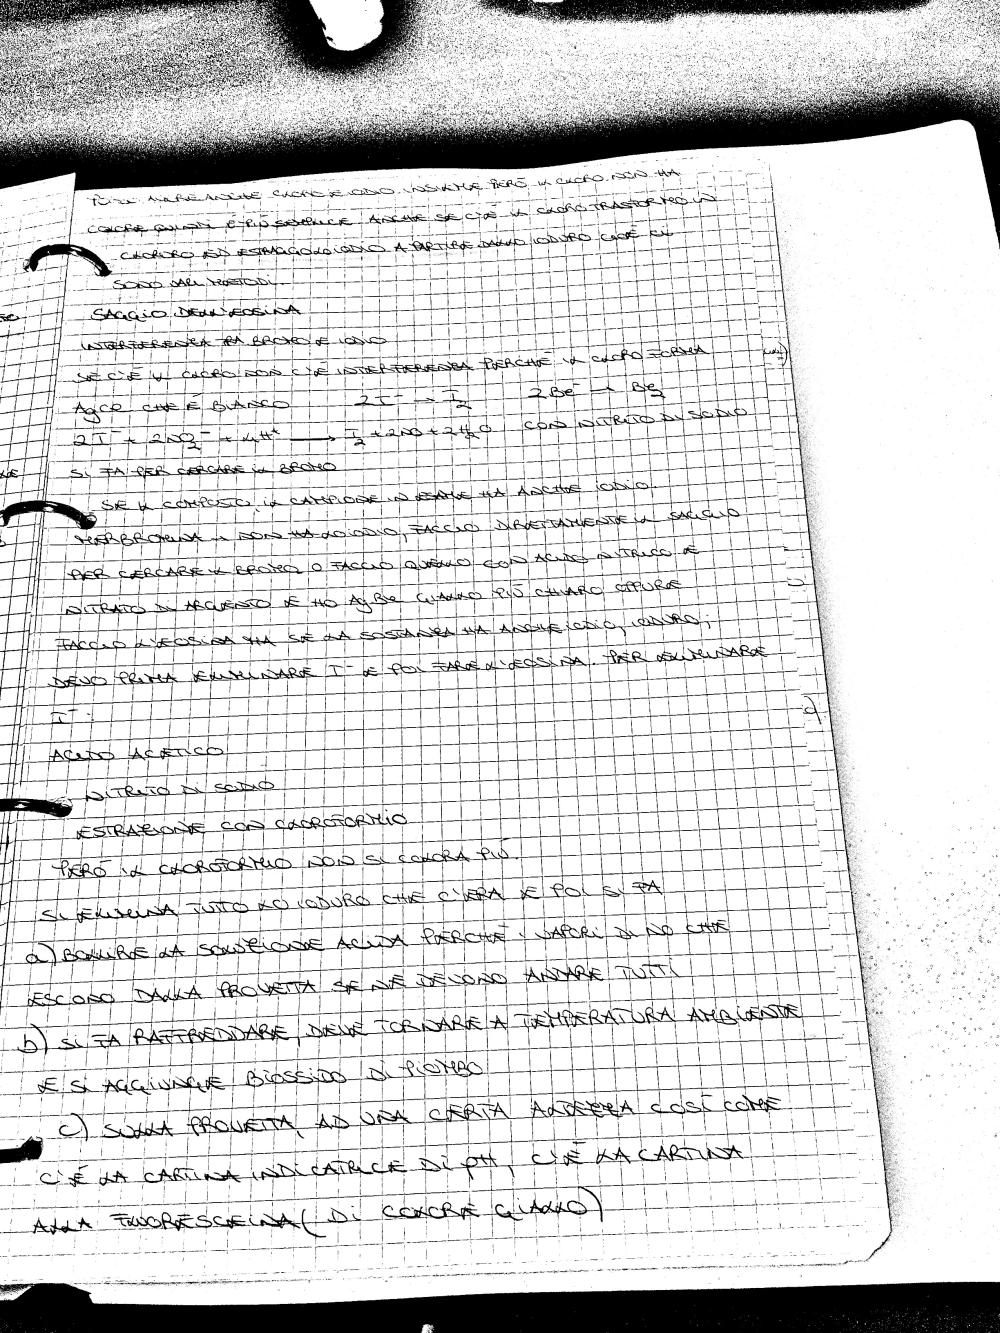 FARE ANCHE CLORO E IODIO INSIEME PERÒ IL CLORO NON HA
COLORE QUINDI È PIÙ SEMPLICE ANCHE SE C'È IL CLORO TRASFORMO IN
CLORURO ED ESTRAGGO LO IODIO A PARTIRE DALLO IODURO
SONO VARI METODI.
SAGGIO DELL'EOSINA
INTERFERENZA TRA BROMO E IODIO
SE C'È IL CLORO NON C'È INTERFERENZA PERCHÈ IL CLORO FORMA
AgCl CHE È BIANCO 2I⁻ → I₂ 2Br⁻ → Br₂
2I⁻ + 2NO₂⁻ + 4H⁺ → I₂ + 2NO + 2H₂O CON NITRITO DI SODIO
SI FA PER CERCARE IL BROMO
SE IL COMPOSTO, IL CAMPIONE IN ESAME HA ANCHE IODIO
MERBROMINA → NON HA LO IODIO, FACCIO DIRETTAMENTE IL SAGGIO
PER CERCARE IL BROMO O FACCIO QUELLO CON ACIDO NITRICO E
NITRATO DI ARGENTO E HO AgBr GIALLO PIÙ CHIARO OPPURE
FACCIO L'EOSINA MA SE LA SOSTANZA HA ANCHE IODIO, IODURO;
DEVO PRIMA ELIMINARE I⁻ E POI FARE L'EOSINA. PER ELIMINARE
I⁻:
ACIDO ACETICO
NITRITO DI SODIO
ESTRAZIONE CON CLOROFORMIO
PERÒ IL CLOROFORMIO NON SI COLORA PIÙ.
SI ELIMINA TUTTO LO IODURO CHE C'ERA E POI SI FA
a) BOLLIRE LA SOLUZIONE ACIDA PERCHÈ I VAPORI DI NO CHE
ESCONO DALLA PROVETTA SE NE DEVONO ANDARE TUTTI
b) SI FA RAFFREDDARE, DEVE TORNARE A TEMPERATURA AMBIENTE
E SI AGGIUNGE BIOSSIDO DI PIOMBO
c) SULLA PROVETTA, AD UNA CERTA ALTEZZA COSÌ COME
C'È LA CARTINA INDICATRICE DI pH, C'È LA CARTINA
ALLA FLUORESCEINA (DI COLORE GIALLO)